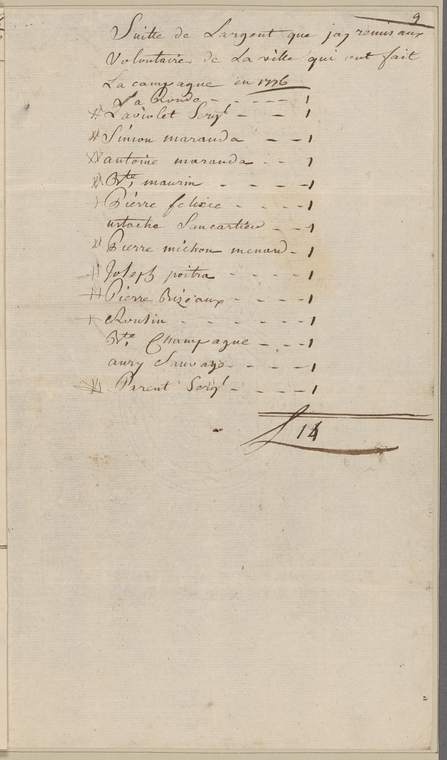 9
Suitte de Largent que jay remis aux
Volontaires de La ville qui ont fait
La campagne en 1776
La Ronde - - - - - 1
Laviolet Sergt - - - 1
Simon maranda - - - 1
antoine maranda - - - 1
Bte maurin - - - 1
Pierre felixce - - - 1
ustache Lancartien - - 1
Pierre michon menard - 1
Joseph poitra - - - - 1
Pierre Bizeaux - - - - 1
Roussin - - - - - 1
Bte Champagne - - - 1
aury Sauvage - - - - 1
Parent Sergt - - - - 1
L 14